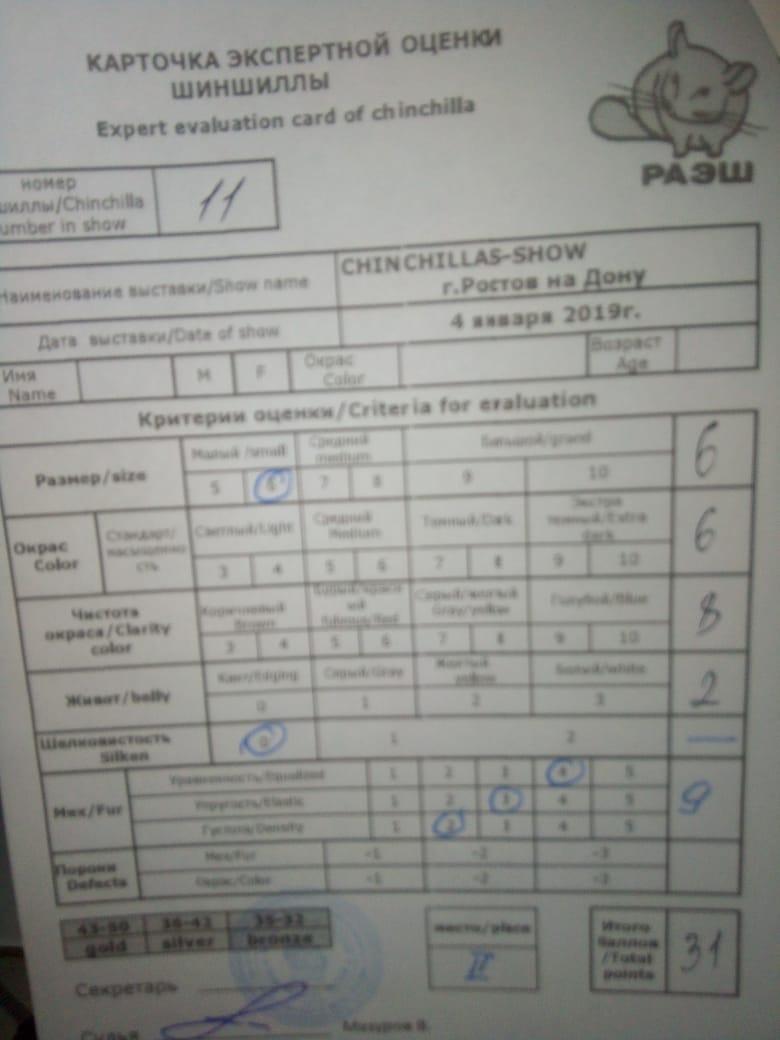 КАРТОЧКА ЭКСПЕРТНОЙ ОЦЕНКИ
ШИНШИЛЛЫ
Expert evaluation card of chinchilla
РАЭШ
номер
шиллы/Chinchilla
umber in show
11
Наименование выставки/Show name
CHINCHILLAS-SHOW
г.Ростов на Дону
Дата выставки/Date of show
4 января 2019г.
Имя
Name
M
F
Окрас
Color
Возраст
Age
Критерии оценки/Criteria for evaluation
Размер/size
Малый/small
Средний
medium
Большой/grand
5 6 7 8 9 10
6
Окрас
Color
Стандарт/
насыщенно
сть
Светлый/Light
Средний
Medium
Темный/Dark
Экстра
темный/Extra
dark
3 4 5 6 7 8 9 10
6
Чистота
окраса/Clarity
color
Коричневый
Brown
Серый/желтый
Gray/yellow
Голубой/Blue
3 4 5 6 7 8 9 10
8
Живот/belly
Кант/Edging
Серый/Gray
Желтый
yellow
Белый/white
0 1 2 3
2
Шелковистость
Silken
0 1 2
—
Мех/Fur
Уравненность/Equalized 1 2 3 4 5
Упругость/Elastic 1 2 3 4 5
Густота/Density 1 2 3 4 5
9
Пороки
Defects
Мех/Fur -1 -2 -3
Окрас/Color -1 -2 -3
43-50 36-42 35-32
gold silver bronze
место/place
II
Итого
баллов
/Total
points
31
Секретарь
Судья
Мазуров В.